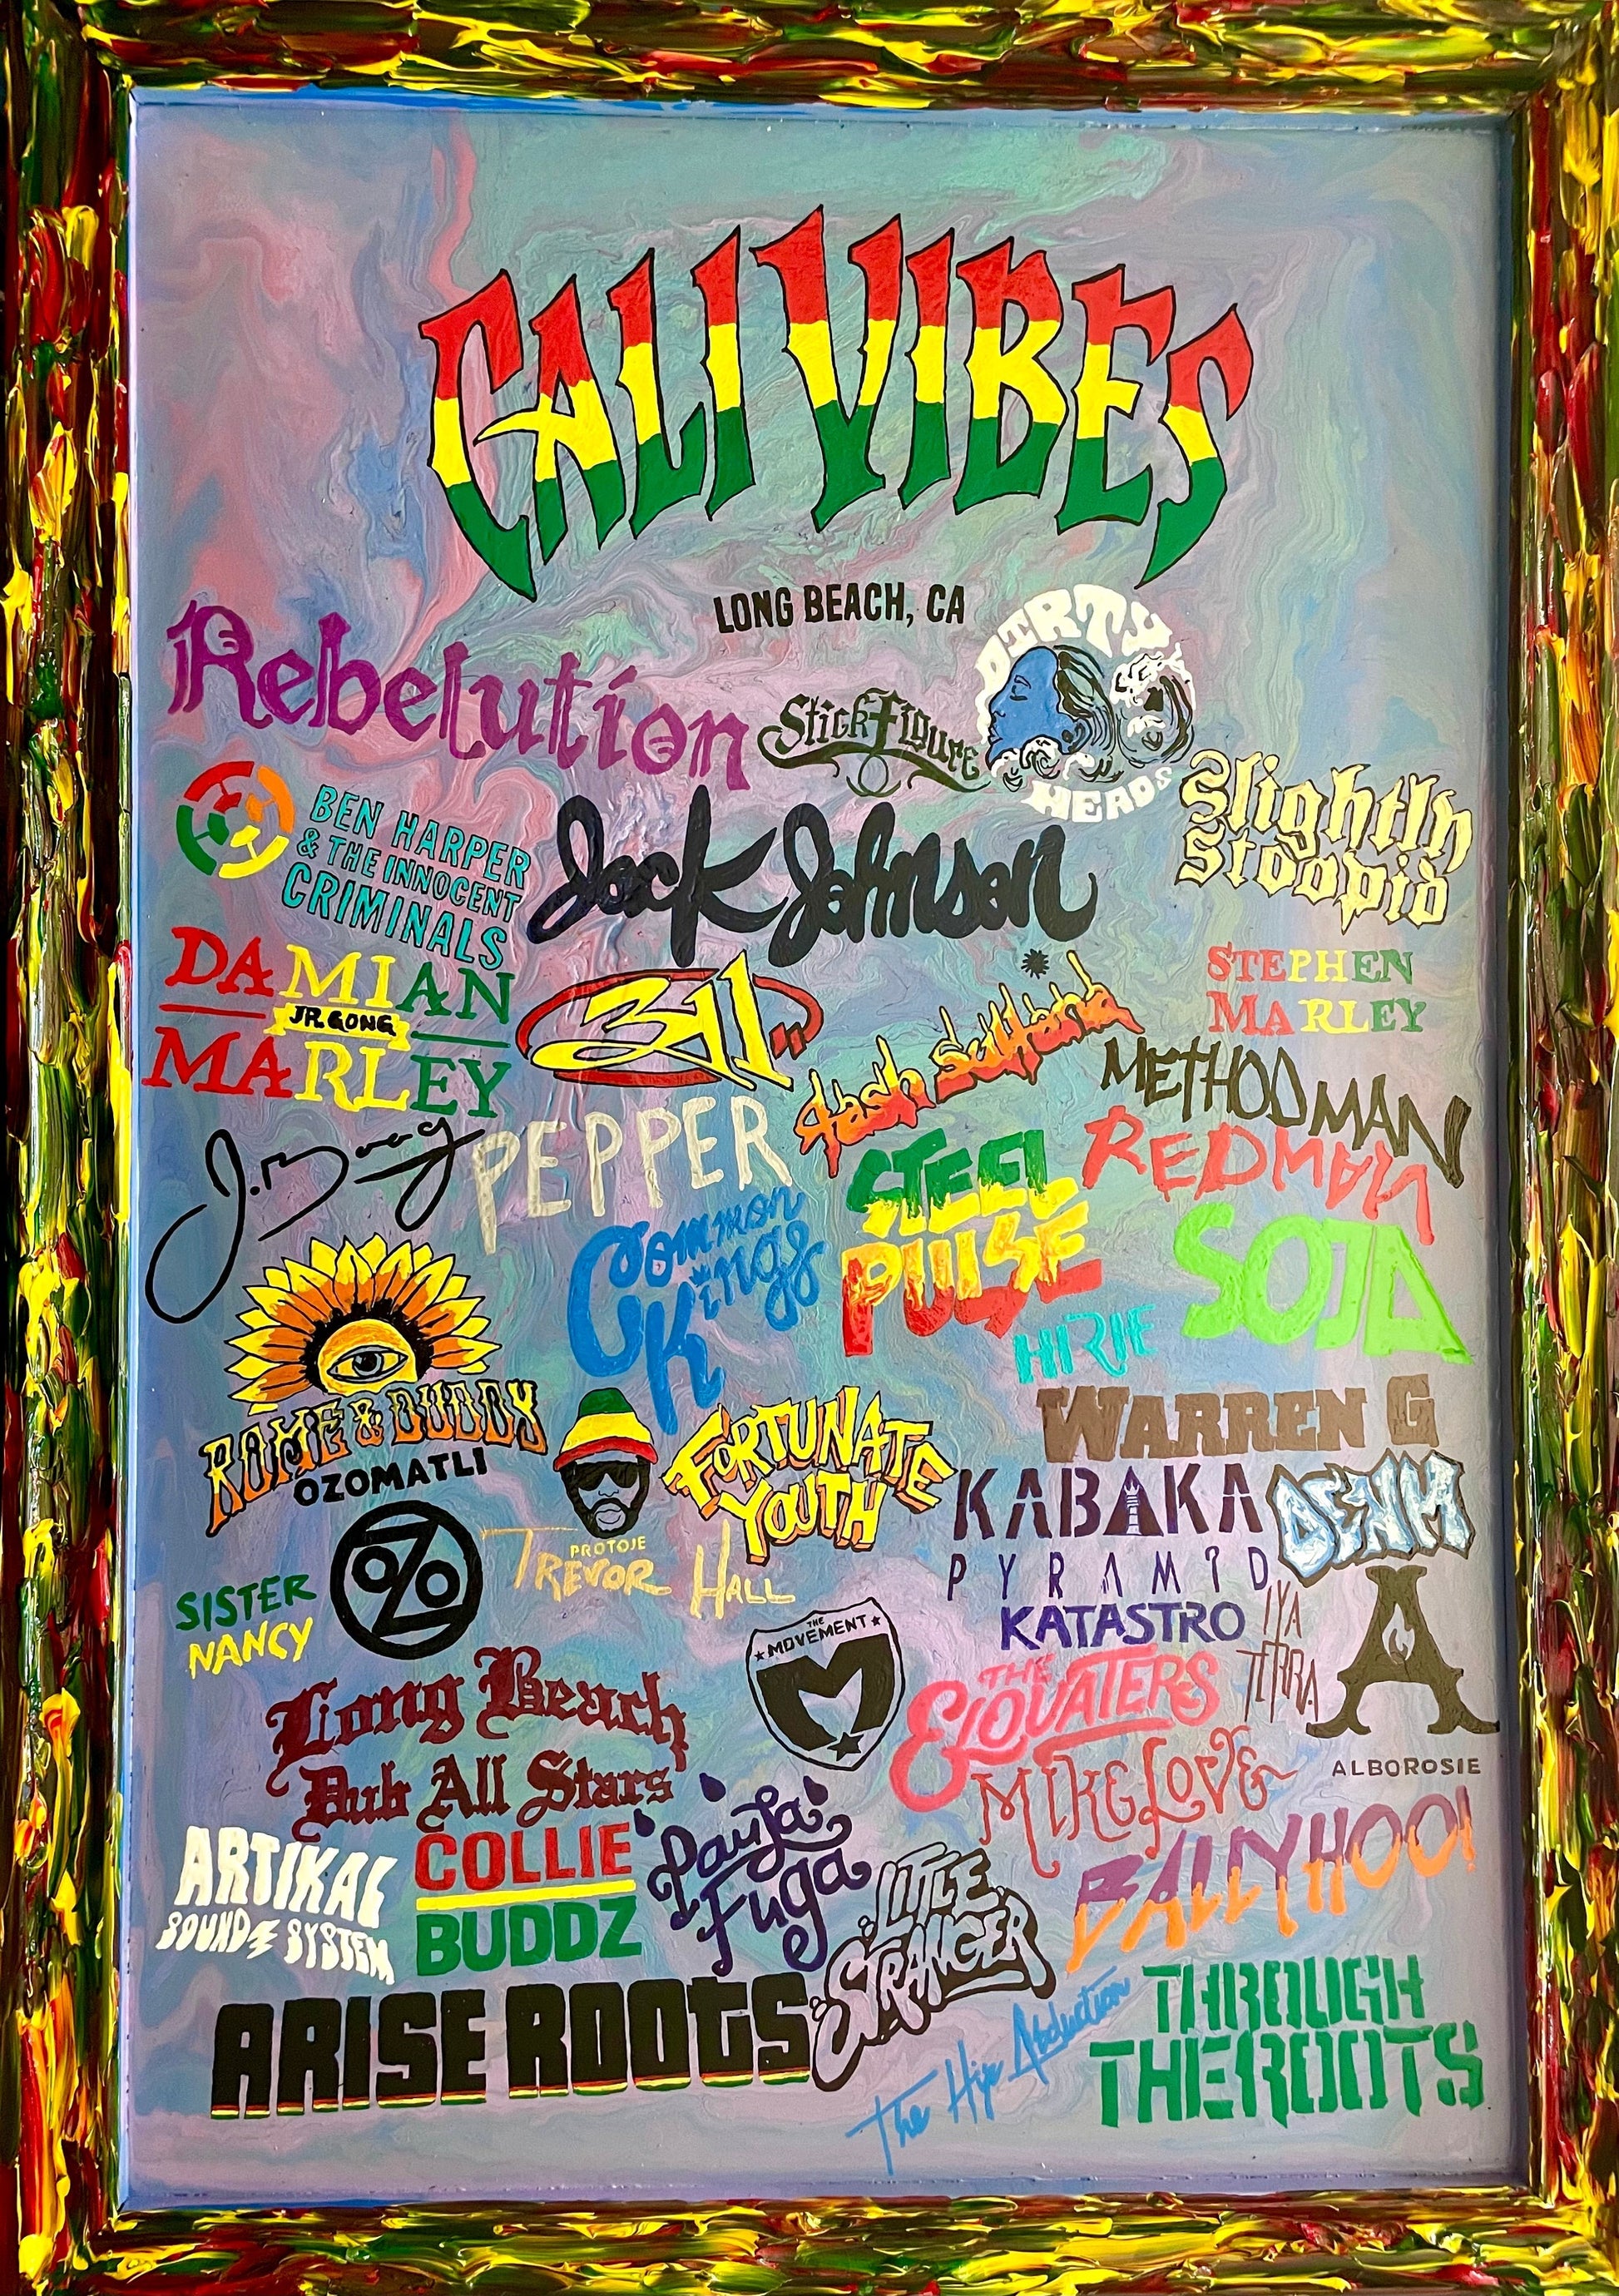 CALI VIBES
LONG BEACH, CA
Rebelution
Stick Figure
DIRTY
HEADS
Slightly
Stoopid
BEN HARPER
& THE INNOCENT
CRIMINALS
Jack Johnson
DAMIAN
JR. GONG
MARLEY
311
tash sultana
STEPHEN
MARLEY
METHOD MAN
REDMAN
J.Boog
PEPPER
STEEL
PULSE
Common
Kings
SOJA
HIRIE
ROME & DUDDY
OZOMATLI
OZO
PROTOJE
FORTUNATE
YOUTH
WARREN G
KABAKA
PYRAMID
DENM
TREVOR HALL
SISTER
NANCY
THE
MOVEMENT
M
KATASTRO
IYA
TERRA
A
ALBOROSIE
Long Beach
Dub All Stars
THE
ELOVATERS
MIKE LOVE
ARTIKAL
SOUND SYSTEM
COLLIE
BUDDZ
Paula
Fuga
LITTLE
STRANGER
BALLYHOO!
ARISE ROOTS
The Hip Abduction
THROUGH
THE ROOTS